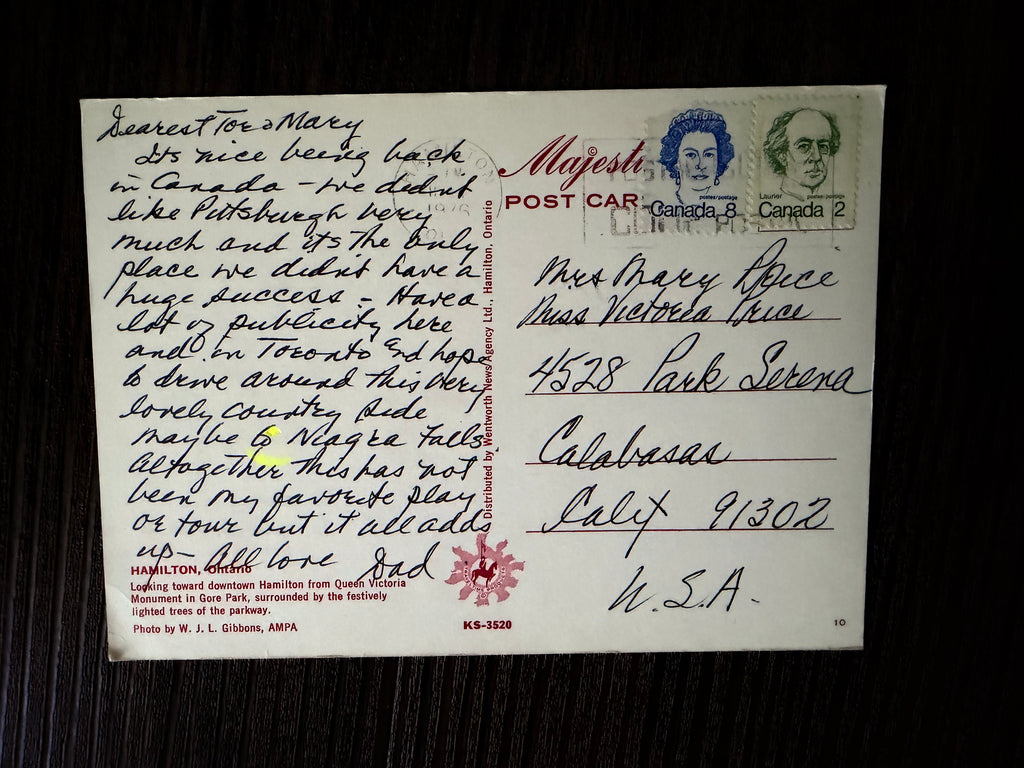 Dearest Tor & Mary
Its nice being back
in Canada - we didnt
like Pittsburgh very
much and its the only
place we didnt have a
huge success - Have a
lot of publicity here
and in Toronto and hope
to drive around this very
lovely country side
maybe to Niagra Falls
Altogether this has not
been my favorite play
or tour but it all adds
up - All love Dad
HAMILTON, Ontario
Looking toward downtown Hamilton from Queen Victoria
Monument in Gore Park, surrounded by the festively
lighted trees of the parkway.
Photo by W. J. L. Gibbons, AMPA
KS-3520
Distributed by Wentworth News Agency Ltd., Hamilton, Ontario
HAMILTON
1976
Majesti
POST CAR
postes/postage
Canada 8
Laurier postes/postage
Canada 2
Mrs Mary Price
Miss Victoria Price
4528 Park Serena
Calabasas
Calif 91302
U.S.A.
10